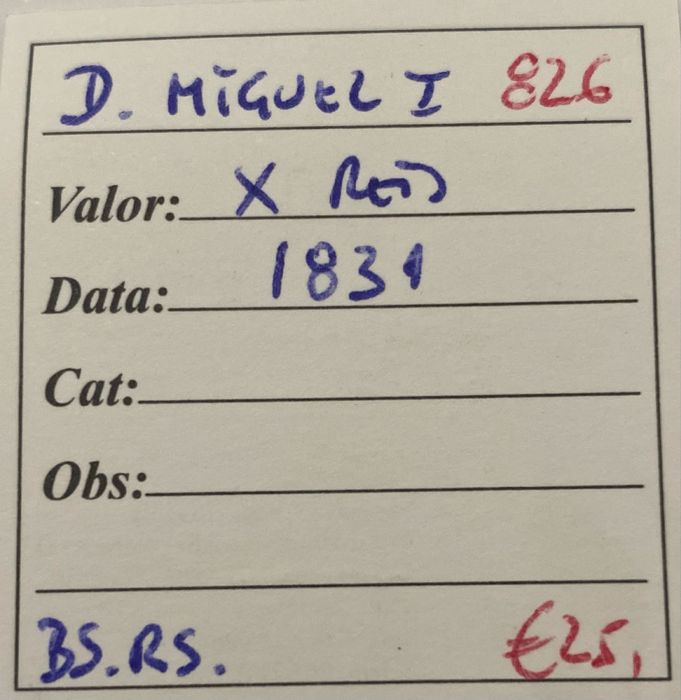 D. MIGUEL I 826
Valor: X REIS
Data: 1831
Cat:
Obs:
BS.RS. €25,